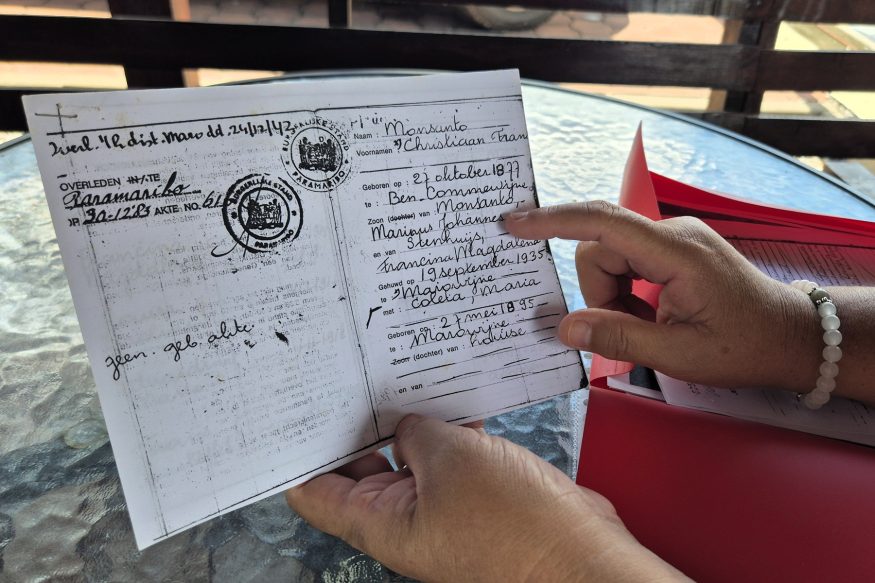 Overl. 4e dist. Maro dd. 24/12/43
OVERLEDEN IN/TE
Paramaribo
BURGERLIJKE STAND
PARAMARIBO
BURGERLIJKE STAND
PARAMARIBO
AKTE: NO.
geen geb akte
Naam : Monsanto
Voornamen : Christiaan Fran
Geboren op : 27 oktober 1877
te : Ben. Commewijne,
Zoon (dochter) van : Monsanto,
Marius Johannes
en van Stenhuijs,
Francina Magdalena
Gehuwd op : 19 september 1935.
te : Marowijne
met : Coleta, Maria
Geboren op : 27 mei 1895
te : Marowijne
Zoon (dochter) van : Louise
en van :